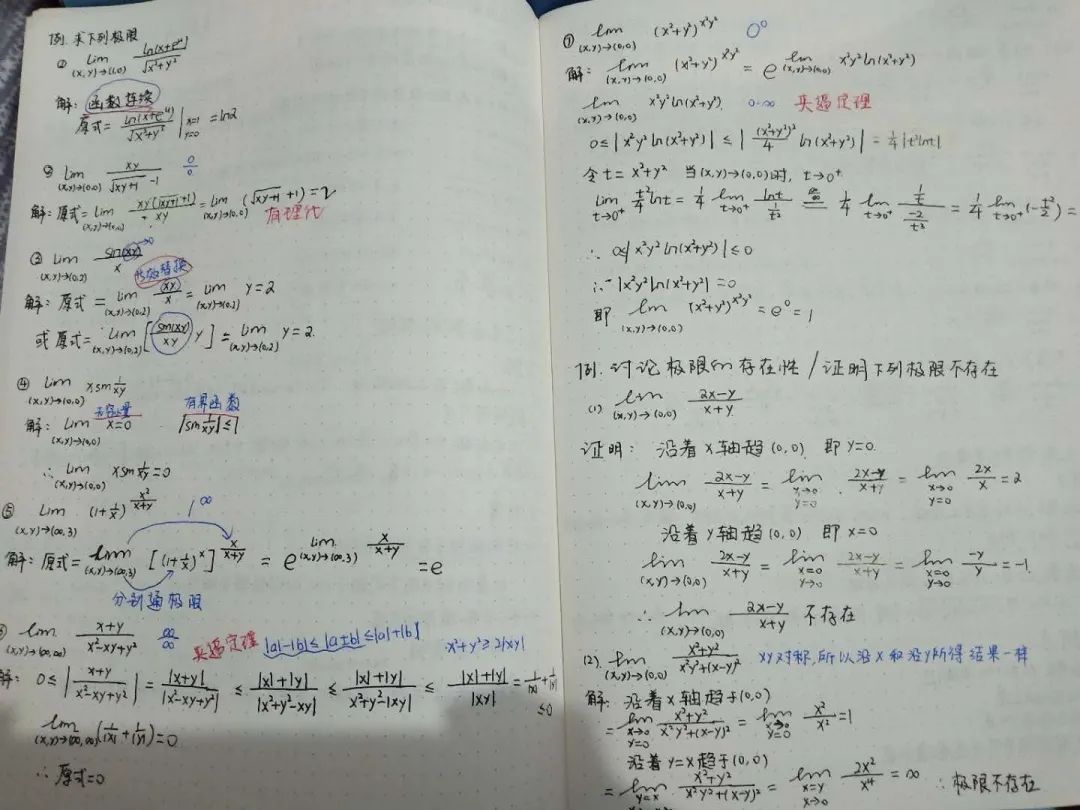 例.求下列极限
① lim (x,y)→(1,0) ln(x+e^y)/√(x²+y²)
解: 函数连续
原式= ln(x+e^y)/√(x²+y²) | x=1 y=0 = ln2
② lim (x,y)→(0,0) xy/(√(xy+1) -1) 0/0
解: 原式= lim (x,y)→(0,0) xy(√(xy+1)+1)/xy = lim (x,y)→(0,0) (√(xy+1)+1) = 2
有理化
③ lim (x,y)→(0,2) sin(xy)/x →0
等效替换
解: 原式 = lim (x,y)→(0,2) (xy)/x = lim (x,y)→(0,2) y = 2
或原式= lim (x,y)→(0,2) [sin(xy)/xy y] = lim (x,y)→(0,2) y = 2.
④ lim (x,y)→(0,0) xsin 1/xy
无穷小量 有界函数
解: lim (x,y)→(0,0) x=0 |sin 1/xy|≤1
∴ lim (x,y)→(0,0) xsin 1/xy = 0
⑤ lim (x,y)→(∞,3) (1+1/x)^(x²/(x+y)) 1^∞
解: 原式= lim (x,y)→(∞,3) [(1+1/x)^x]^(x/(x+y)) = e^(lim (x,y)→(∞,3) x/(x+y)) = e
分别通极限
lim (x,y)→(∞,∞) (x+y)/(x²-xy+y²) ∞/∞ 夹逼定理 |a|-|b|≤|a±b|≤|a|+|b| x²+y²≥2|xy|
解: 0≤|(x+y)/(x²-xy+y²)| = |x+y|/|x²-xy+y²| ≤ (|x|+|y|)/|x²+y²-xy| ≤ (|x|+|y|)/(x²+y²-|xy|) ≤ (|x|+|y|)/|xy| = 1/|x| + 1/|y| ≤0
lim (x,y)→(∞,∞) (1/|x|+1/|y|)=0
∴ 原式=0
⑦ lim (x,y)→(0,0) (x²+y²)^(x²y²) 0⁰
解: lim (x,y)→(0,0) (x²+y²)^(x²y²) = e^(lim (x,y)→(0,0) x²y²ln(x²+y²))
lim (x,y)→(0,0) x²y²ln(x²+y²) 0·∞ 夹逼定理
0≤|x²y²ln(x²+y²)| ≤ |(x²+y²)²/4 ln(x²+y²)| = 1/4|t²lnt|
令t= x²+y² 当(x,y)→(0,0)时, t→0⁺
lim t→0⁺ t²/4 lnt = 1/4 lim t→0⁺ lnt/(1/t²) ∞/∞ = 1/4 lim t→0⁺ (1/t)/(-2/t³) = 1/4 lim t→0⁺ (-t²/2) =
∴ 0≤|x²y²ln(x²+y²)|≤0
∴ |x²y²ln(x²+y²)|=0
即 lim (x,y)→(0,0) (x²+y²)^(x²y²) = e⁰ = 1
例. 讨论极限的存在性/证明下列极限不存在
(1) lim (x,y)→(0,0) (2x-y)/(x+y)
证明: 沿着x轴趋(0,0) 即y=0.
lim (x,y)→(0,0) (2x-y)/(x+y) = lim x→0 y=0 (2x-y)/(x+y) = lim x→0 y=0 2x/x = 2
沿着y轴趋(0,0) 即x=0
lim (x,y)→(0,0) (2x-y)/(x+y) = lim x=0 y→0 (2x-y)/(x+y) = lim x=0 y→0 -y/y = -1.
∴ lim (x,y)→(0,0) (2x-y)/(x+y) 不存在
(2). lim (x,y)→(0,0) (x²+y²)/(x²y²+(x-y)²) xy对称,所以沿x和沿y所得结果一样
解: 沿着x轴趋于(0,0)
= lim x→0 y=0 (x²+y²)/(x²y²+(x-y)²) = lim x→0 y=0 x²/x² = 1
沿着y=x趋于(0,0)
= lim y=x (x²+y²)/(x²y²+(x-y)²) = lim x=y x→0 2x²/x⁴ = ∞ ∴极限不存在